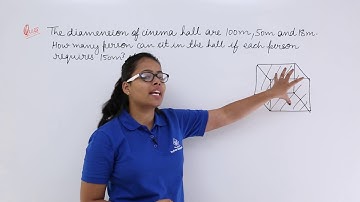 Ques The diamension of cinema hall are 100m, 50m and 18m.
How many person can sit in the hall if each person
requires 150m³?